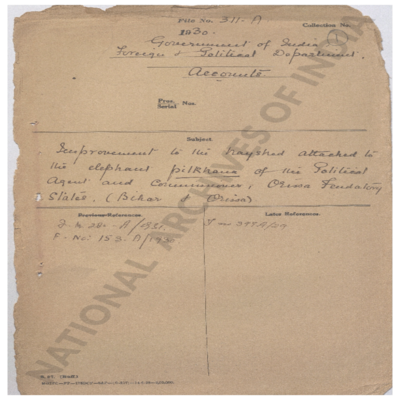 File No. 311-A
Collection No.
1930.
Government of India
Foreign & Political Department.
Accounts
Proc.
Serial Nos.
Subject
Improvement to the hayshed attached to
the elephant pilkhana of the Political
Agent and Commissioner, Orissa Feudatory
States. (Bihar & Orissa)
Previous References
Later References.
F. No. 153-A/
NATIONAL ARCHIVES OF INDIA